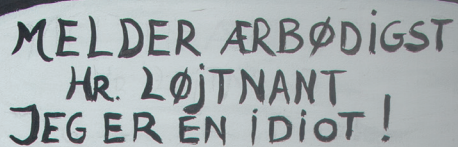 MELDER ÆRBØDIGST
HR. LØJTNANT
JEG ER EN IDIOT!